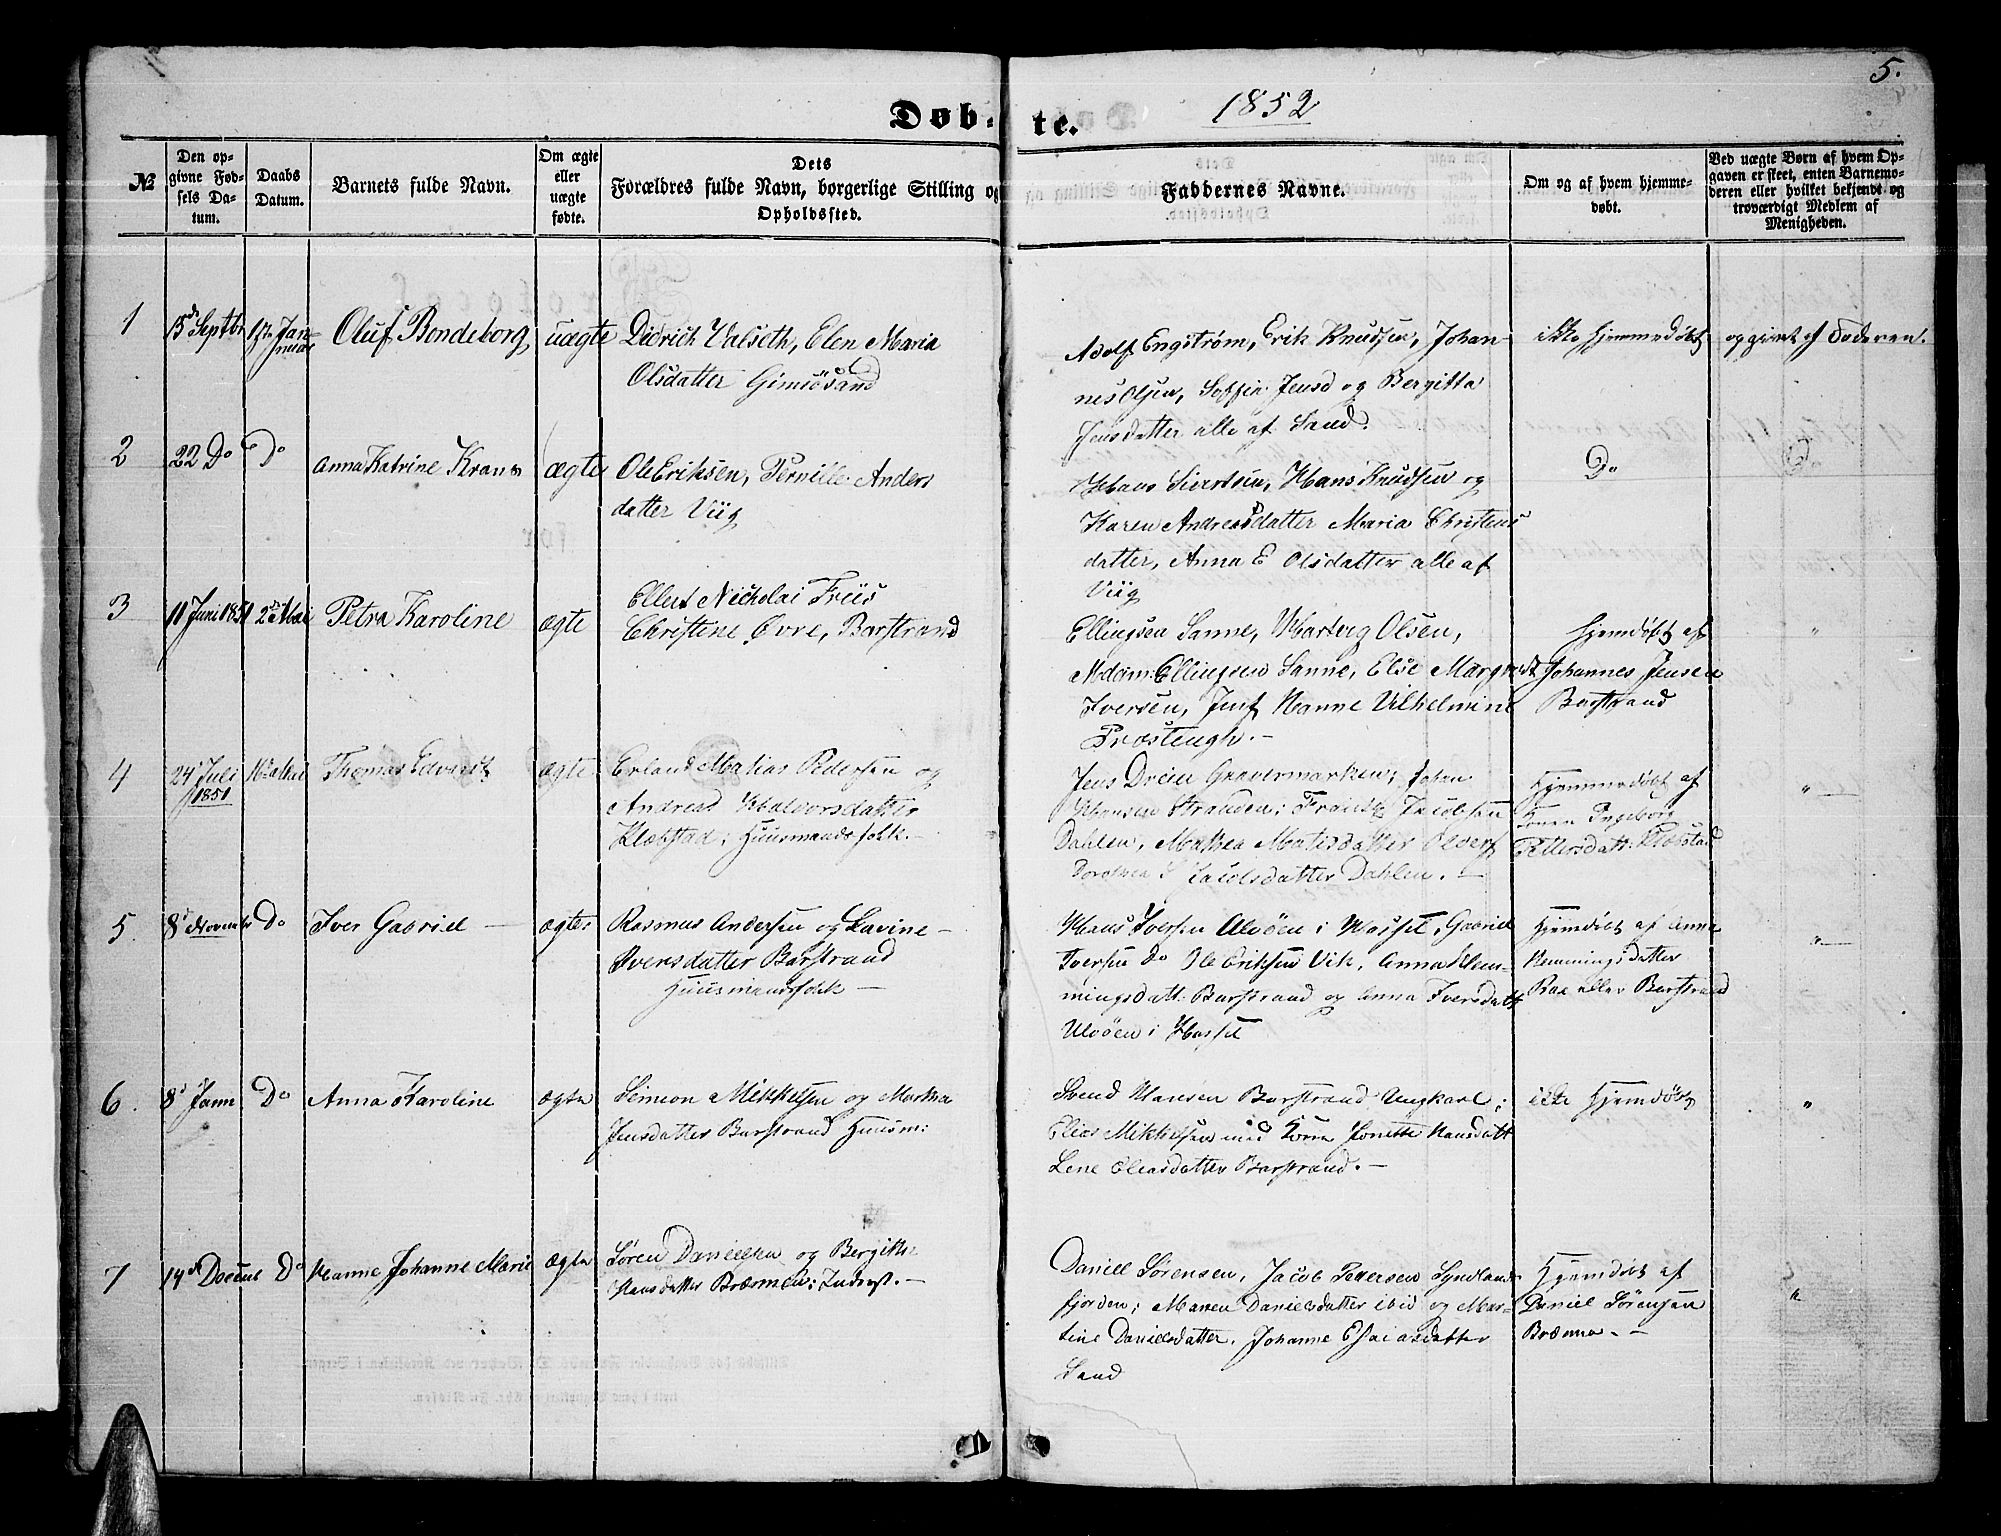 5.
Døb-te. 1852
№
Den op-
givne Fød-
sels Da-
tum.
Daabs
Datum.
Barnets fulde Navn.
Om ægte
eller
uægte
fødte.
Dets
Forældres fulde Navn, borgerlige Stilling og
Opholdssted.
Faddernes Navne.
Om og af hvem hjemme-
døbt.
Ved uægte Børn af hvem Op-
gaven er skeet, enten Barnemo-
deren eller hvilket bekjendt og
troværdigt Medlem af
Menigheden.
1
15d Septbr
17 Jan-
nuar
Oluf Bondeborg
uægte
Didrich Valseth, Elen Maria
Olsdatter Gimsösand
Adolf Engström, Erik Knudsen, Johan-
nes Olsen, Soffia Jensd og Bergitta
Jensdatter alle af Sand.
ikke hjemmedøbt
opgivet af Faderen.
2
22 Do
Do
Anna Katrine Krans
ægte
Ole Eriksen, Pernille Anders
datter Viig
Hans Sivertsen, Hans Knudsen og
Karen Andreasdatter Maria Christens
datter, Anna E Olsdatter alle af
Viig
Do
Do
3
11 Juni 1851
2d Mai
Petra Karoline
ægte
Ellert Nicholai Friis
Christine Övre, Barstrand
Ellingsen Sanne, Hartvig Olsen,
Madam Ellingsen Sanne, Else Margredt
Iversen, Jmf Hanne Vilhelmine
Præstengh. -
Hjemdøbt af
Johannes Jensen
Barstrand
"
4
24d Juli
1851
16d Mai
Thomas Edvardt
ægte
Erland Matias Pedersen og
Andrea Halvorsdatter
Klæbstad; Huusmandsfolk. -
Jens Dreier Gravermarken; Johan
Hansen Stranden; Frantz Jacobsen
Dahlen, Mathea Matisdatter
Dorothea S Jacobsdatter Dahlen. -
Hjemmedøbt af
Ingeborg
Pettersdatt: Klæbstad
"
5.
8d Novembr
Do
Iver Gabriel -
ægte
Rasmus Andersen og Lavine -
Iversdatter Barstrand
Huusmandsfolk -
Hans Iversen Ulvöen i Hassel, Gabriel
Iversen Do Ole Eriksen Vik, Anna Hem-
mingsdatt: Barstrand og Anna Iversdatt
Ulvöen i Hassel
Hjemdøbt af Anna
Hemmingsdatter
Barstrand
"
6.
8d Jann
Do
Anna Karoline
ægte
Simeon Mikkelsen og Martha
Jensdatter Barstrand Huusm:
Svend Hansen Barstrand Ungkarl;
Elias Mikkelsen med Kone Jonette Hansdatt
Lene Eliasdatter Barstrand. -
ikke Hjemdøbt
"
7
14d Decembr
Do
Hanne Johanne Marie
ægte
Søren Danielsen og Bergitte
Hansdatter Bræmnen; Inderst. -
Daniel Sörensen, Jacob Pettersen Syndlands-
fjorden; Maren Danielsdatter ibid og Mar-
tine Danielsdatter, Johanne Esaiasdatter
Sand
Hjemdøbt af
Daniel Sörensen
Bræmna. -
"